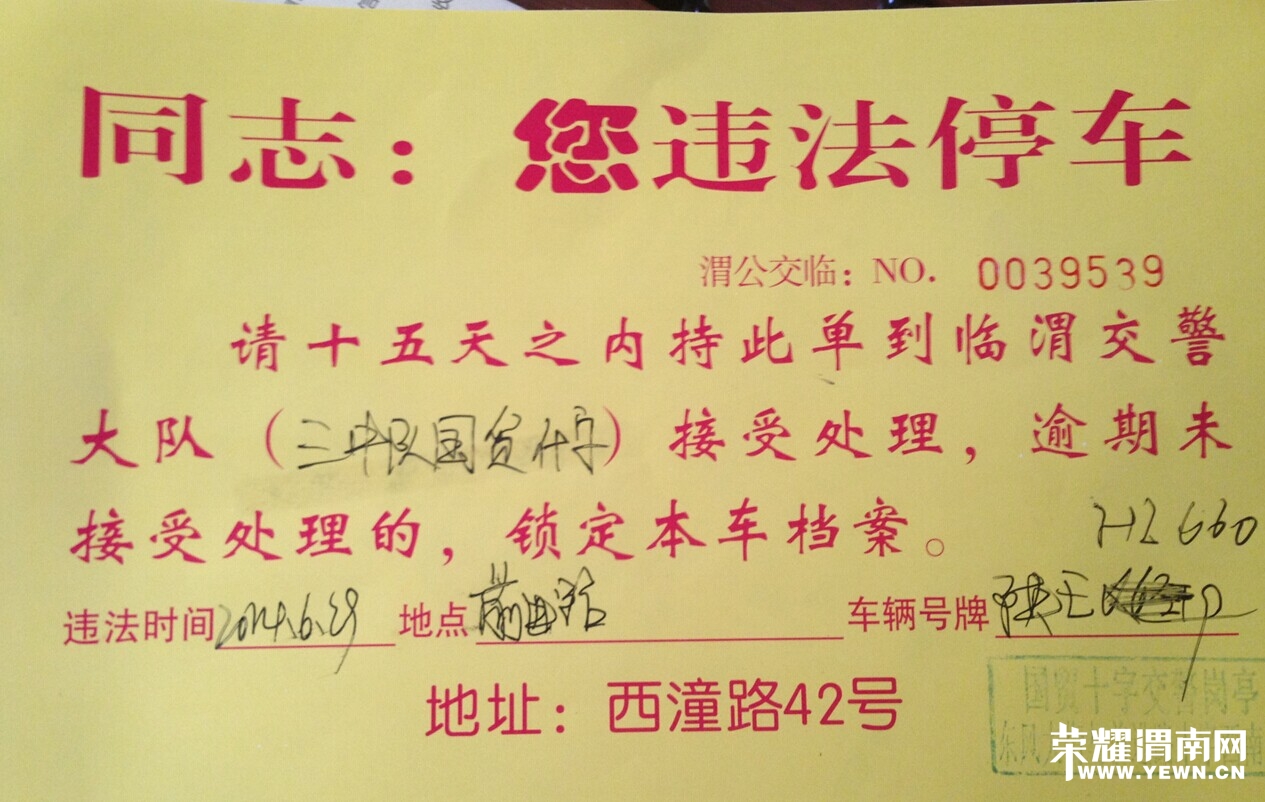 同志：您违法停车
渭公交临：NO. 0039539
请十五天之内持此单到临渭交警
大队（三中队国贸十字）接受处理，逾期未
接受处理的，锁定本车档案。
HZ660
违法时间2014.6.29 地点前进路 车辆号牌陕E
地址：西潼路42号
国贸十字交警岗亭
东风
荣耀渭南网
WWW.YEWN.CN